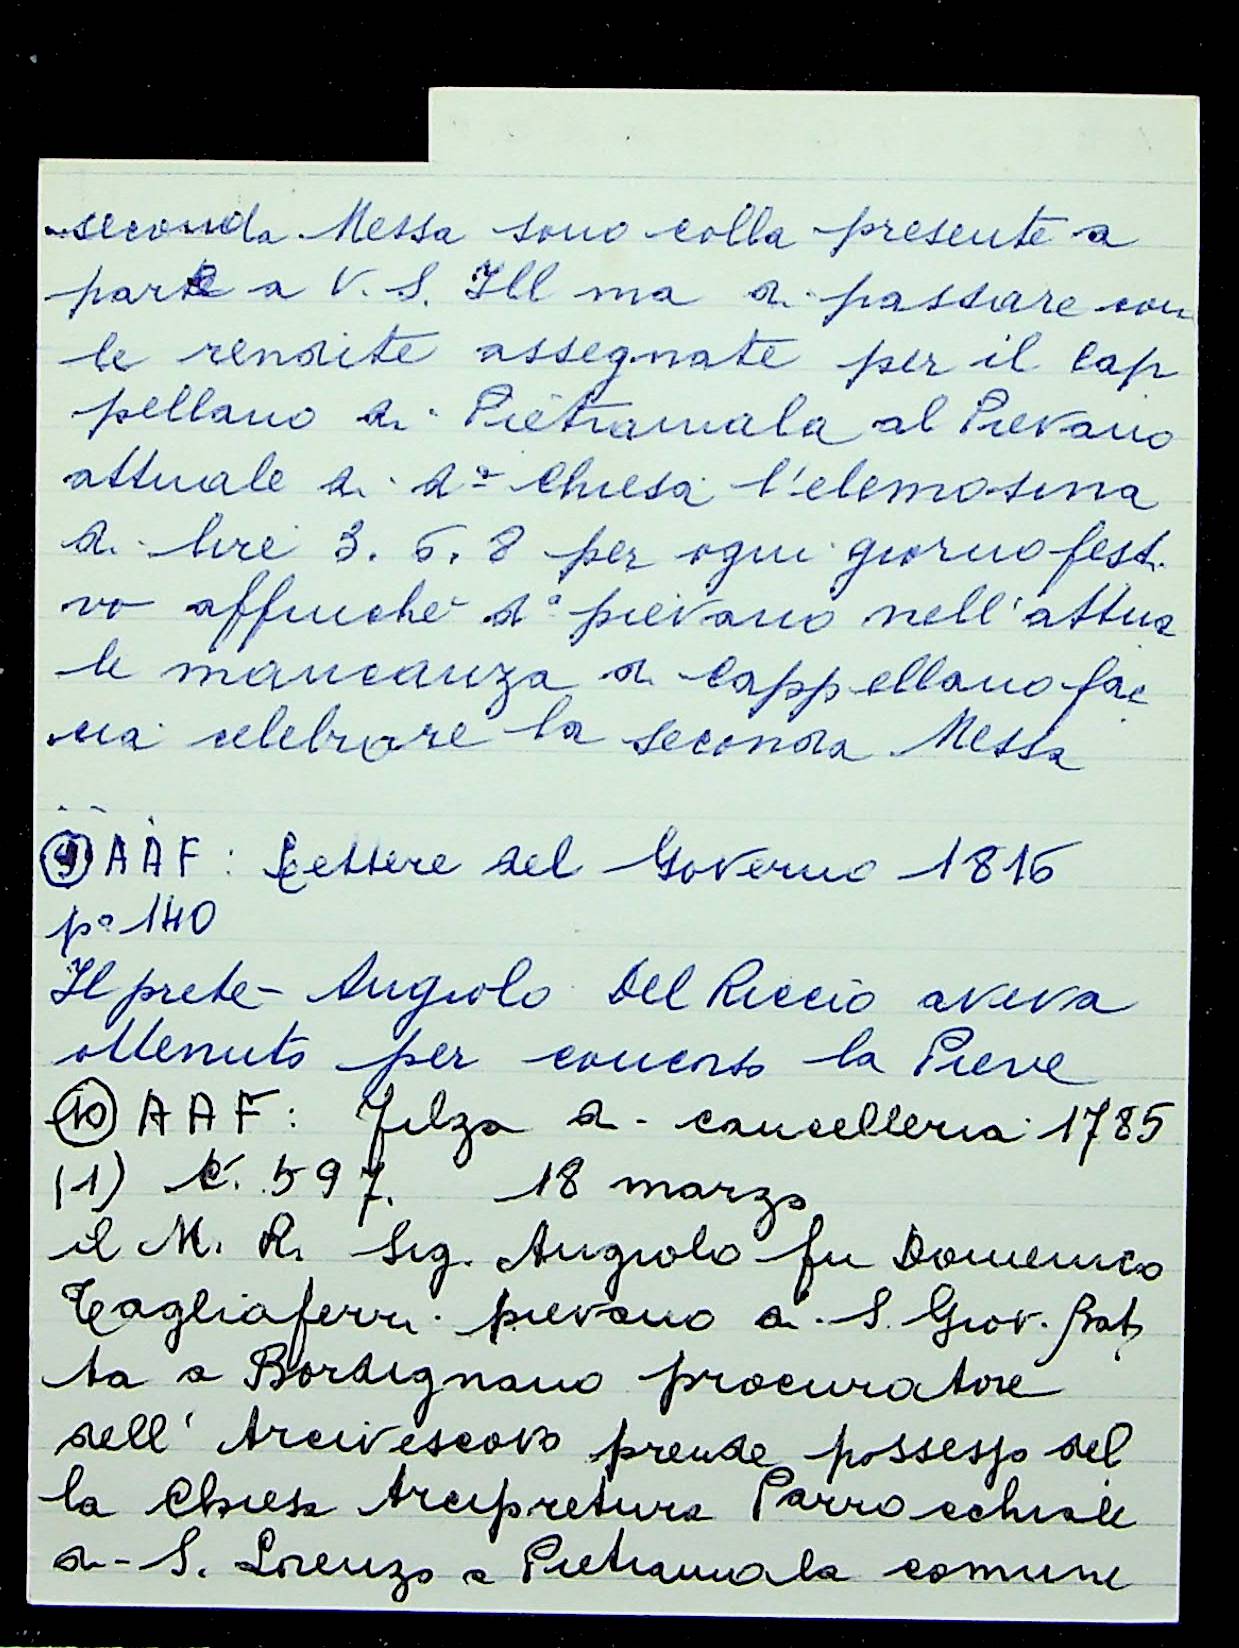 seconda Messa sono colla presente a
parte a V. S. Ill ma di passare con
le rendite assegnate per il Cap
pellano di Pietramala al Pievano
attuale di dª Chiesa l'elemosina
di lire 3. 6. 8 per ogni giorno festi
vo affinchè dº pievano nell'attua
le mancanza di Cappellano fac
cia celebrare la seconda Messa
9 AAF: Lettere del Governo 1816
pº 140
Il prete Angiolo Del Riccio aveva
ottenuto per concorso la Pieve
10 AAF: Filza di cancelleria 1785
(1) c. 597. 18 marzo
il M. R. Sig. Angiolo fu Domenico
Tagliaferri pievano di S. Giov. Bat
ta a Bordignano procuratore
dell' Arcivescovo prende possesso del
la Chiesa Arcipretura Parrocchiale
di S. Lorenzo a Pietramala comune